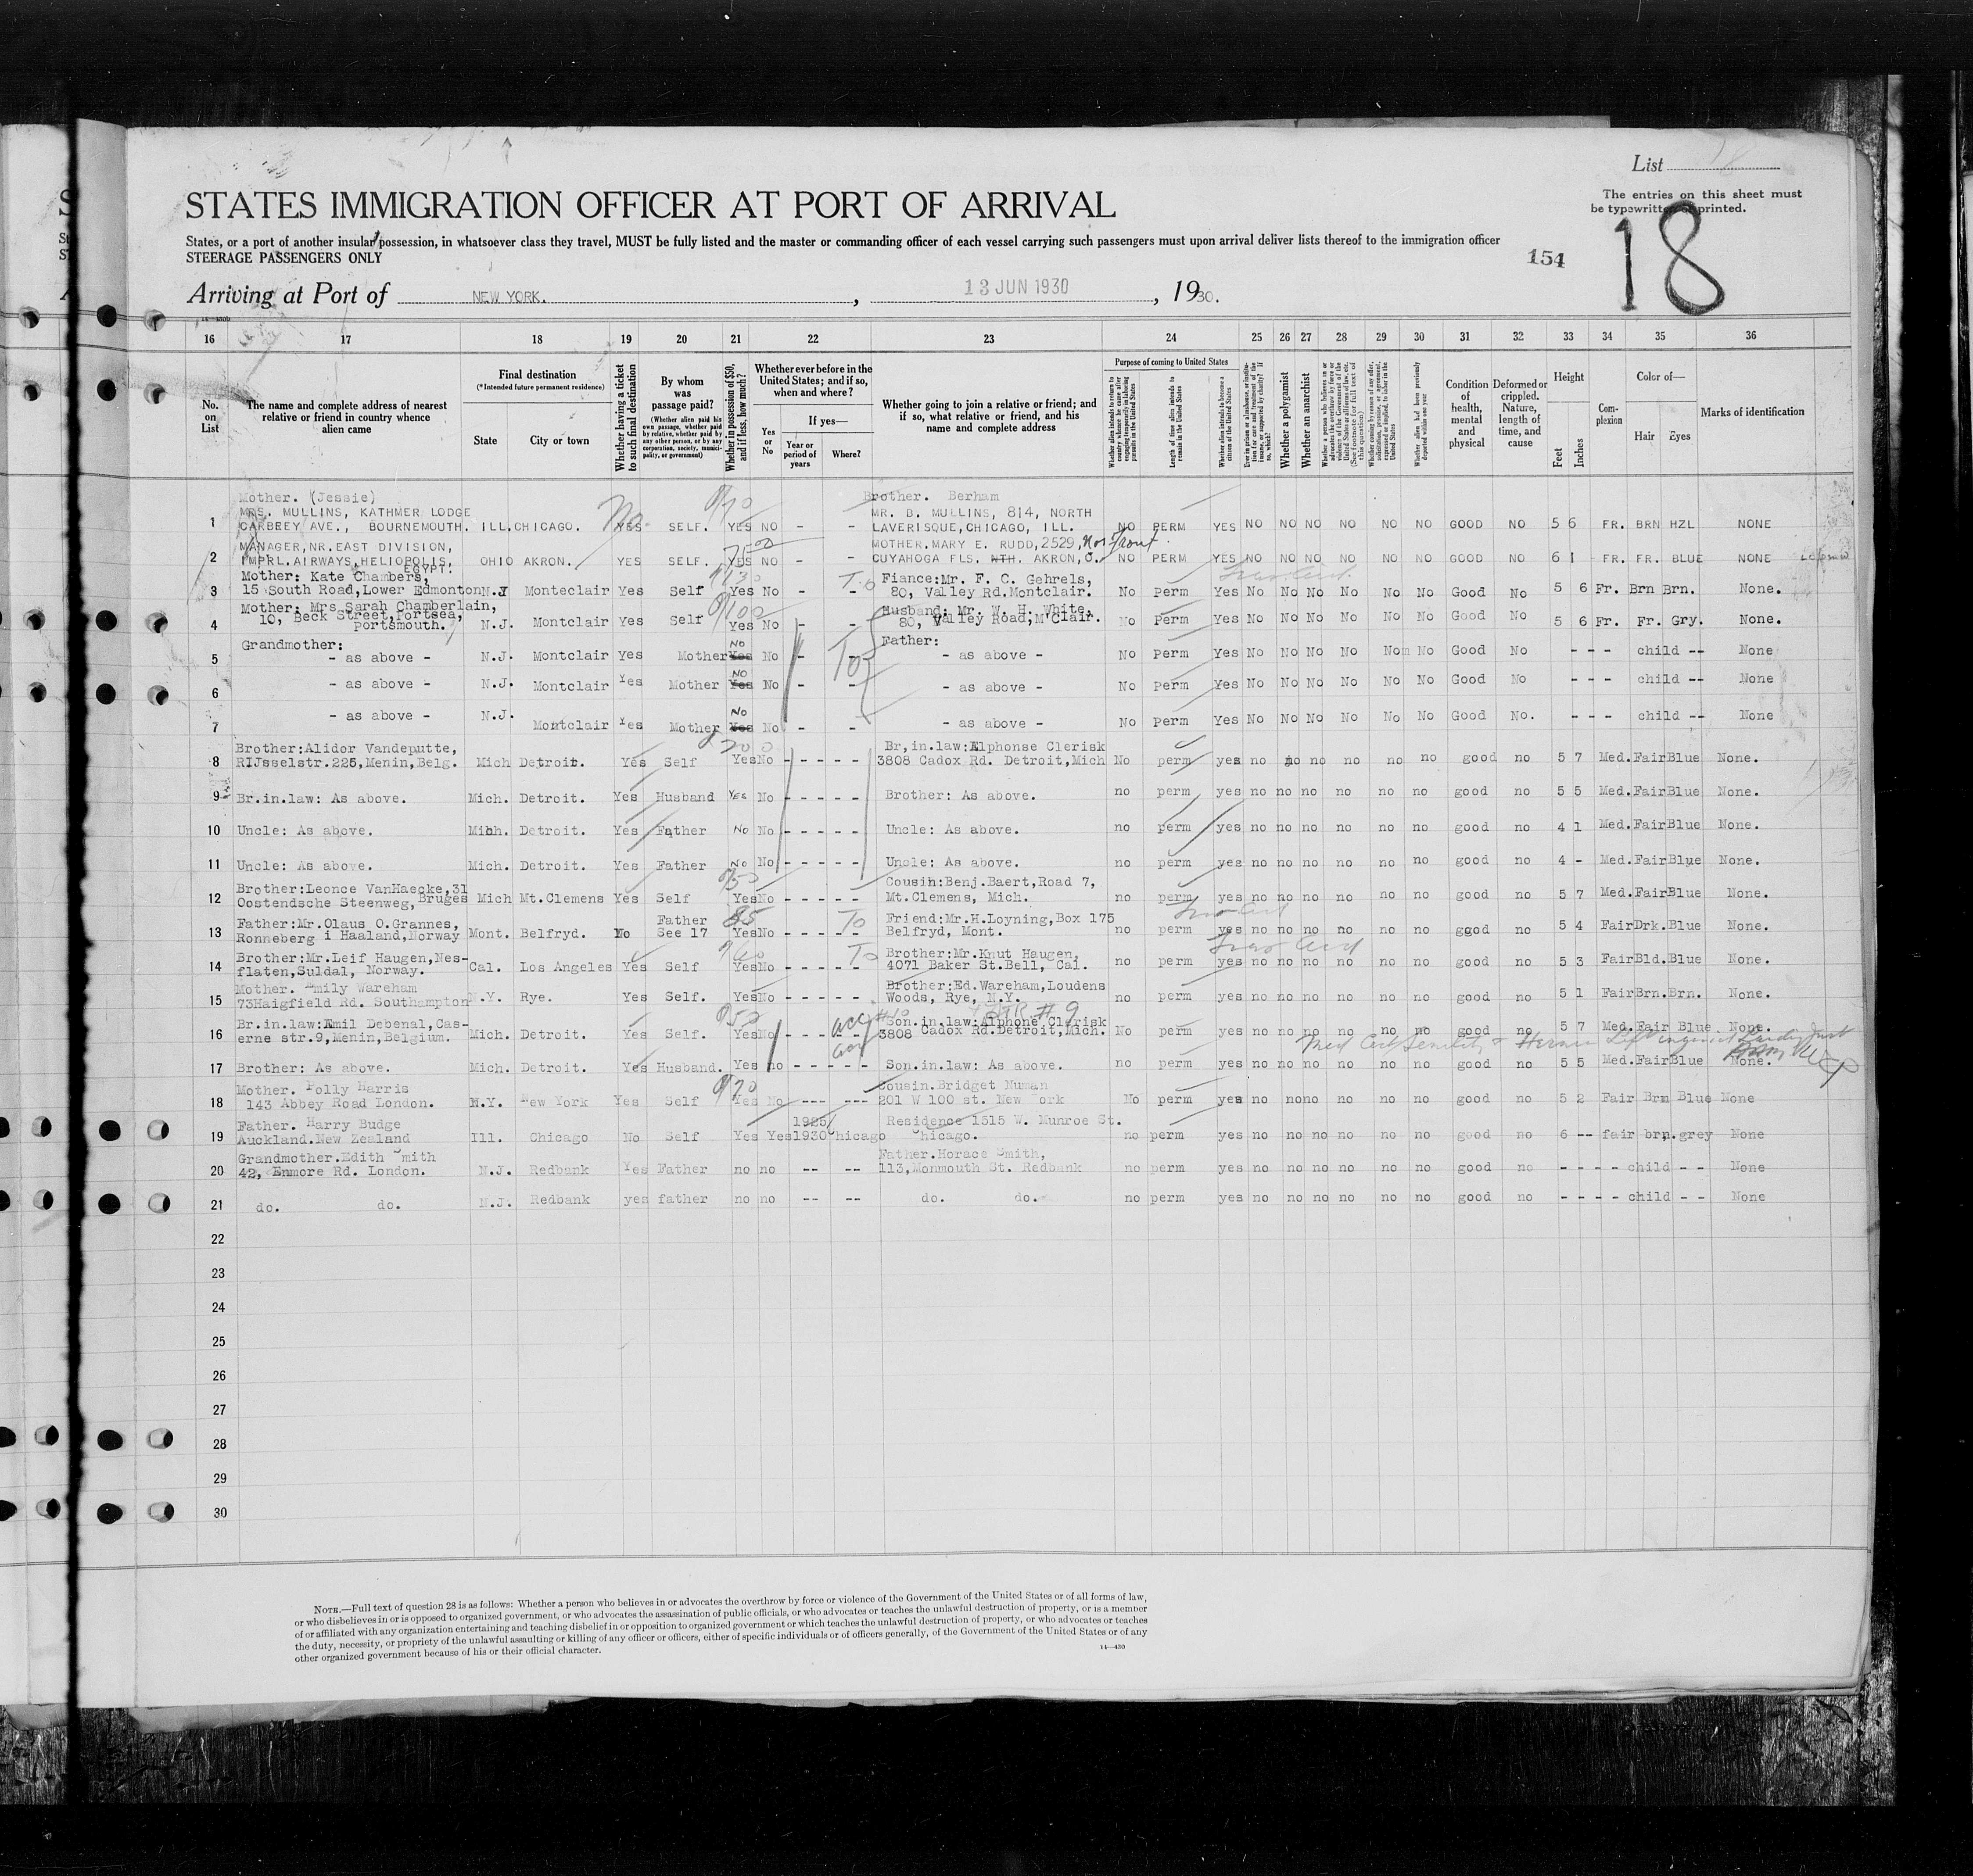 List
The entries on this sheet must
be typewritten or printed.
18
154
STATES IMMIGRATION OFFICER AT PORT OF ARRIVAL
States, or a port of another insular possession, in whatsoever class they travel, MUST be fully listed and the master or commanding officer of each vessel carrying such passengers must upon arrival deliver lists thereof to the immigration officer
STEERAGE PASSENGERS ONLY
Arriving at Port of NEW YORK. , 13 JUN 1930 , 1930.
16 17 18 19 20 21 22 23 24 25 26 27 28 29 30 31 32 33 34 35 36
No. on List
The name and complete address of nearest relative or friend in country whence alien came
Final destination
(*Intended future permanent residence)
State City or town
Whether having a ticket to such final destination
By whom was passage paid?
(Whether alien paid his own passage, whether paid by relative, whether paid by any other person, or by any corporation, society, municipality, or government)
Whether in possession of $50, and if less, how much?
Whether ever before in the United States; and if so, when and where?
Yes or No
If yes—
Year or period of years
Where?
Whether going to join a relative or friend; and if so, what relative or friend, and his name and complete address
Purpose of coming to United States
Whether alien intends to return to country whence he came after engaging temporarily in laboring pursuits in the United States
Length of time alien intends to remain in the United States
Whether alien intends to become a citizen of the United States
Whether a polygamist
Whether an anarchist
Condition of health, mental and physical
Deformed or crippled. Nature, length of time, and cause
Height
Feet Inches
Complexion
Color of—
Hair Eyes
Marks of identification
Mother. (Jessie) Brother. Berham
1 MRS. MULLINS, KATHMER LODGE MR. B. MULLINS, 814, NORTH
CARBREY AVE., BOURNEMOUTH. ILL. CHICAGO. No YES SELF. $70 YES NO - - LAVERISQUE, CHICAGO, ILL. NO PERM YES NO NO NO NO NO NO GOOD NO 5 6 FR. BRN HZL NONE
2 MANAGER, NR. EAST DIVISION, MOTHER. MARY E. RUDD, 2529, Nor. Front.
IMPRL. AIRWAYS, HELIOPOLIS, EGYPT. OHIO AKRON. YES SELF. YES NO - - CUYAHOGA FLS. NTH. AKRON, O. NO PERM YES NO NO NO NO NO NO GOOD NO 6 1 FR. FR. BLUE NONE
3 Mother: Kate Chambers, Fiance: Mr. F. C. Gehrels,
15 South Road, Lower Edmonton N.J Monteclair Yes Self Yes No - - 80, Valley Rd. Montclair. No Perm Yes No No No No No No Good No 5 6 Fr. Brn Brn. None.
4 Mother: Mrs Sarah Chamberlain, Husband: Mr. W. H. White,
10, Beck Street, Portsea, Portsmouth. N.J. Montclair Yes Self $100 Yes No - - 80, Valley Road, M'Clair. No Perm Yes No No No No No No Good No 5 6 Fr. Fr. Gry. None.
5 Grandmother: Father:
- as above - N.J. Montclair Yes Mother NO Yes No - - - as above - No Perm Yes No No No No No No Good No - - - child -- None
6 - as above - N.J. Montclair Yes Mother NO Yes No - - - as above - No Perm Yes No No No No No No Good No - - - child -- None
7 - as above - N.J. Montclair Yes Mother No Yes No - - - as above - No Perm Yes No No No No No No Good No. - - - child -- None
8 Brother: Alidor Vandeputte, Br, in. law: Alphonse Clerisk
RIJsselstr. 225, Menin, Belg. Mich Detroit. Yes Self Yes No - - - - - 3808 Cadox Rd. Detroit, Mich No perm yes no no no no no no good no 5 7 Med. Fair Blue None.
9 Br. in. law: As above. Mich. Detroit. Yes Husband Yes No - - - - - Brother: As above. no perm yes no no no no no no good no 5 5 Med. Fair Blue None.
10 Uncle: As above. Mich. Detroit. Yes Father No No - - - - - Uncle: As above. no perm yes no no no no no no good no 4 1 Med. Fair Blue None.
11 Uncle: As above. Mich. Detroit. Yes Father No No - - - - - Uncle: As above. no perm yes no no no no no no good no 4 - Med. Fair Blue None.
12 Brother: Leonce VanHaecke, 31 Cousin: Benj. Baert, Road 7,
Oostendsche Steenweg, Bruges Mich Mt. Clemens Yes Self $50 Yes No - - - - - Mt. Clemens, Mich. no perm yes no no no no no no good no 5 7 Med. Fair Blue None.
13 Father: Mr. Olaus O. Grannes, Father Friend: Mr. H. Loyning, Box 175
Ronneberg i Haaland, Norway Mont. Belfryd. No See 17 85 Yes No - - - - - Belfryd, Mont. no perm yes no no no no no no good no 5 4 Fair Drk. Blue None.
14 Brother: Mr. Leif Haugen, Nes- Brother: Mr. Knut Haugen,
flaten, Suldal, Norway. Cal. Los Angeles Yes Self Yes No - - - - - 4071 Baker St. Bell, Cal. no perm yes no no no no no no good no 5 3 Fair Bld. Blue None.
15 Mother. Emily Wareham Brother: Ed. Wareham, Loudens
73 Haigfield Rd. Southampton N.Y. Rye. Yes Self. Yes No - - - - - Woods, Rye, N.Y. no perm yes no no no no no no good no 5 1 Fair Brn. Brn. None.
16 Br. in. law: Emil Debenal, Cas- Son. in. law: Alphone Clerisk
erne str. 9, Menin, Belgium. Mich. Detroit. Yes Self. $50 Yes No - - - 3808 Cadox Rd. Detroit, Mich. No perm yes no no no no no no good no 5 7 Med. Fair Blue None.
17 Brother: As above. Mich. Detroit. Yes Husband. Yes no - - - - - Son. in. law: As above. no perm yes no no no no no no good no 5 5 Med. Fair Blue None.
18 Mother. Polly Harris Cousin. Bridget Numan
143 Abbey Road London. N.Y. New York Yes Self $70 Yes No --- --- 201 W 100 st. New York No perm yes no no no no no no good no 5 2 Fair Brn Blue None
19 Father. Harry Budge 1925/ Residence 1515 W. Munroe St.
Auckland. New Zealand Ill. Chicago No Self Yes Yes 1930 Chicago Chicago. no perm yes no no no no no no good no 6 -- fair brn. grey None
20 Grandmother. Edith Smith Father. Horace Smith,
42, Enmore Rd. London. N.J. Redbank Yes Father no no -- -- 113, Monmouth St. Redbank no perm yes no no no no no no good no - - - - child - - None
21 do. do. N.J. Redbank yes father no no -- -- do. do. no perm yes no no no no no no good no - - - - child - - None
22
23
24
25
26
27
28
29
30
NOTE.—Full text of question 28 is as follows: Whether a person who believes in or advocates the overthrow by force or violence of the Government of the United States or of all forms of law,
or who disbelieves in or is opposed to organized government, or who advocates the assassination of public officials, or who advocates or teaches the unlawful destruction of property, or is a member
of or affiliated with any organization entertaining and teaching disbelief in or opposition to organized government or which teaches the unlawful destruction of property, or who advocates or teaches
the duty, necessity, or propriety of the unlawful assaulting or killing of any officer or officers, either of specific individuals or of officers generally, of the Government of the United States or of any
other organized government because of his or their official character.
14—430